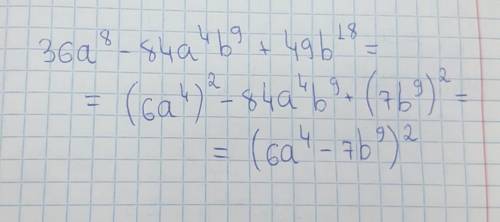 36a⁸ - 84a⁴b⁹ + 49b¹⁸ =
= (6a⁴)² - 84a⁴b⁹ + (7b⁹)² =
= (6a⁴ - 7b⁹)²